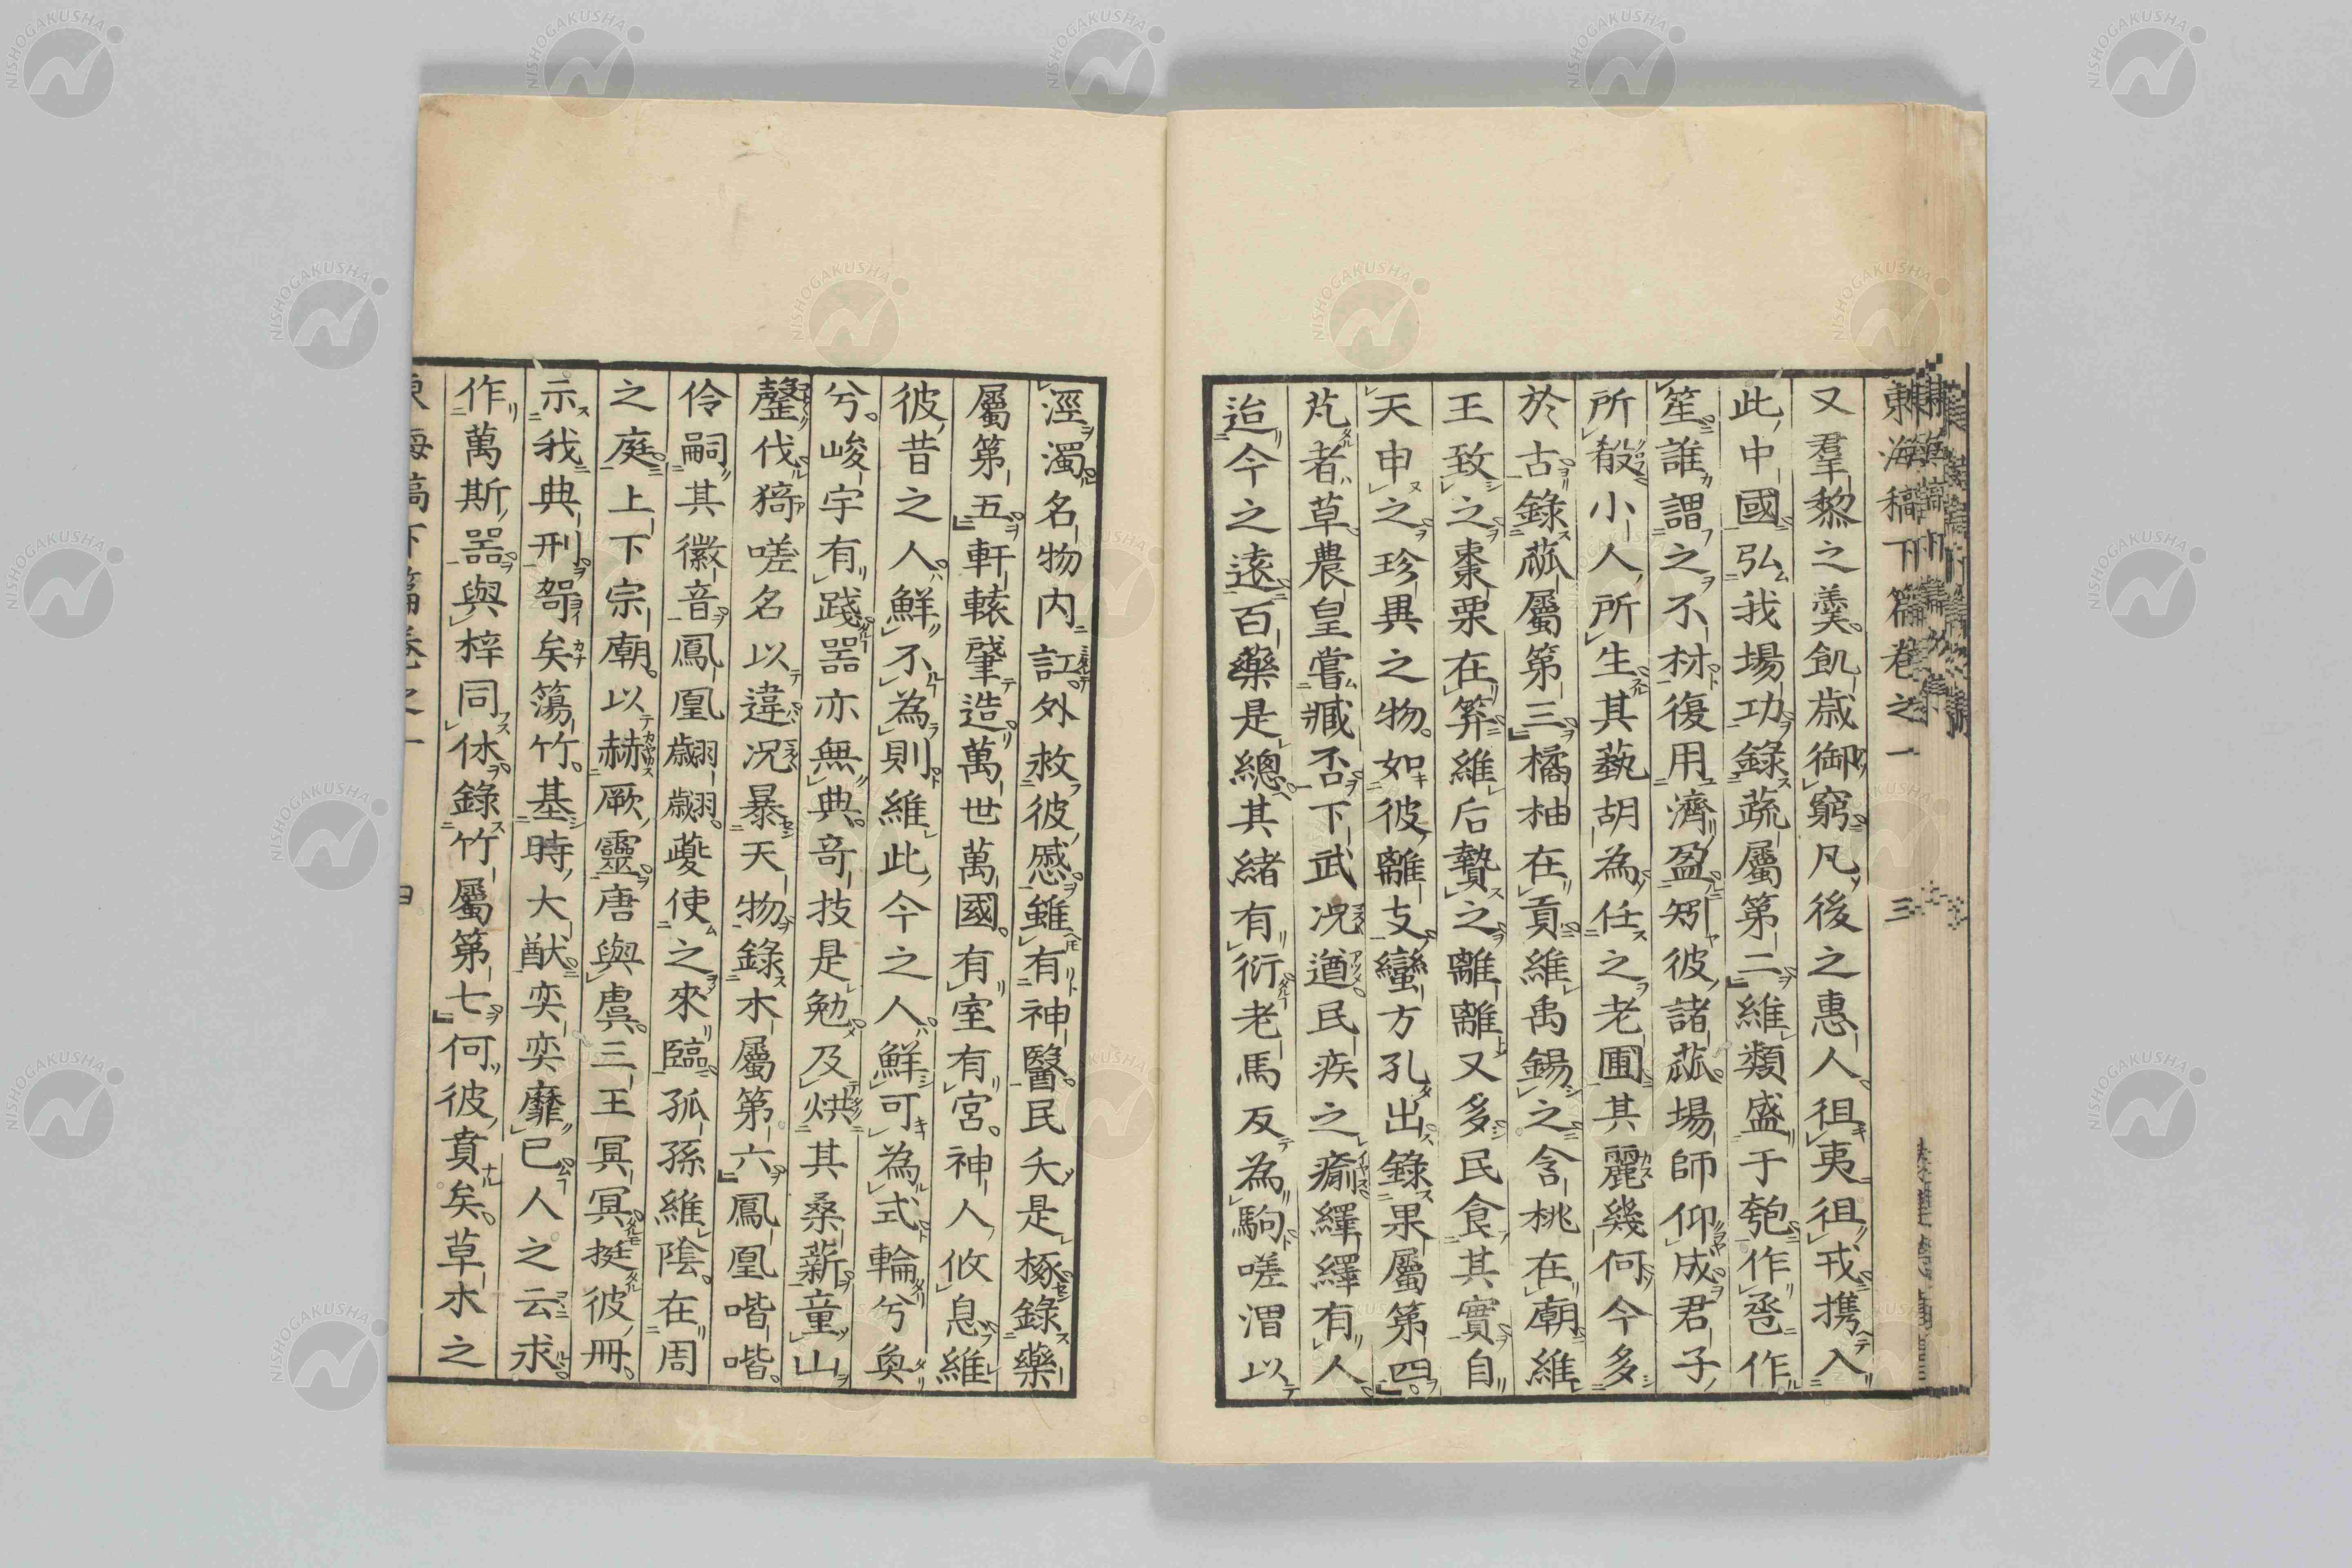 東海稿下篇卷之一 三
又羣黎之羹飢歳御窮凡後之惠人徂夷徂戎携入
此中國弘我場功錄蔬屬第二維類盛于匏作卺作
笙誰謂之不材復用濟盈矧彼諸蓏場師仰成君子
所殽小人所生其蓺胡為任之老圃其麗幾何今多
於古錄蓏屬第三橘柚在貢維禹錫之含桃在廟維
王致之棗栗在筭維后贄之離離又多民食其實自
天申之珍異之物如彼離支蠻方孔出錄果屬第四
芃者草農皇嘗臧否下武况遒民疾之瘉繹繹有人
迨今之遠百藥是總其緒有衍老馬反為駒嗟涽以
涇濁名物內訌外救彼慼雖有神醫民夭是椓錄藥
屬第五軒轅肈造萬世萬國有室有宮神人攸息維
彼昔之人鮮不為則維此今之人鮮可為式輪兮奐
兮峻宇有踐噐亦無典竒技是勉及烘其桑薪童山
罄伐猗嗟名以違况暴天物錄木屬第六鳳凰喈喈
伶嗣其徽音鳳凰翽翽夔使之來臨孤孫維陰在周
之庭上下宗廟以赫厥靈唐與虞三王冥冥挺彼冊
示我典刑哿矣蕩竹基時大猷奕奕靡已人之云求
作萬斯噐與梓同休錄竹屬第七何彼賁矣草木之
東海稿下篇卷之一 四
NISHOGAKUSHA